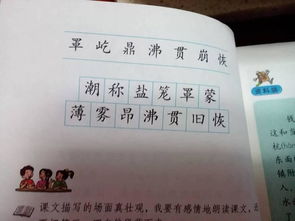 罩 屹 鼎 沸 贯 崩 恢
潮 称 盐 笼 罩 蒙
薄 雾 昂 沸 贯 旧 恢
课文描写的场面真壮观，我要有感情地朗读课文，
资料袋
钱
东面
镇附